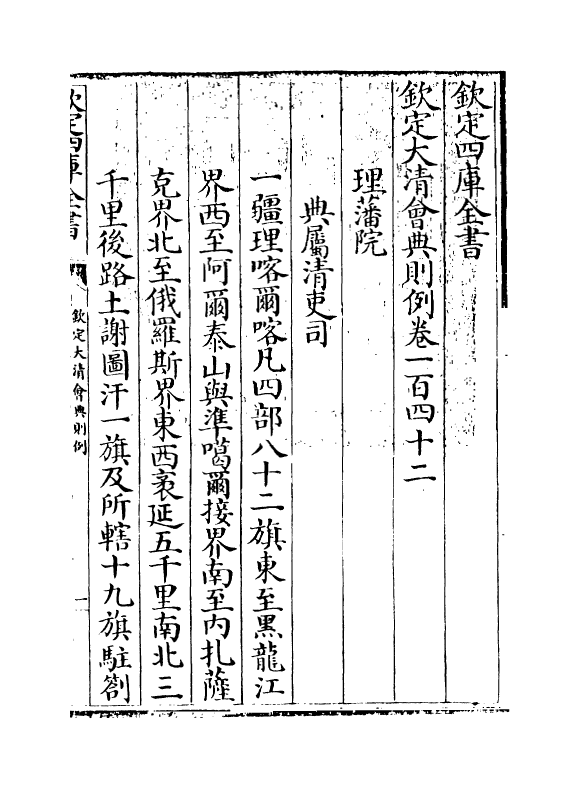 欽定四庫全書
欽定大清會典則例卷一百四十二
理藩院
典屬清吏司
一疆理喀爾喀凡四部八十二旗東至黑龍江
界西至阿爾泰山與準噶爾接界南至內扎薩
克界北至俄羅斯界東西袤延五千里南北三
千里後路土謝圖汗一旗及所轄十九旗駐劄
欽定四庫全書
欽定大清會典則例
一